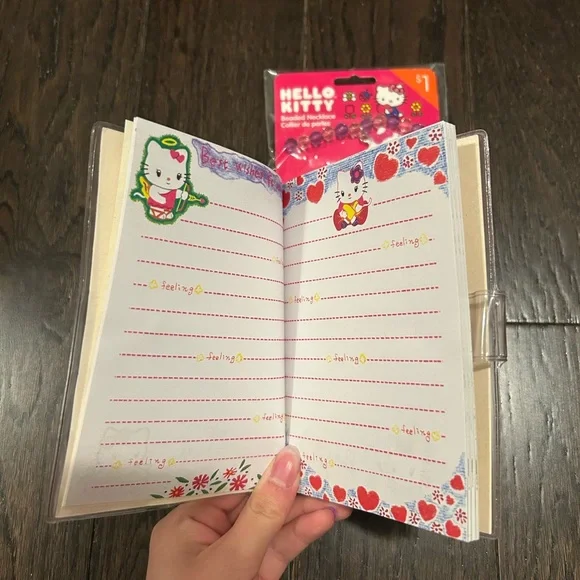 $1
HELLO
KITTY
Beaded Necklace
Collier de perles
best wishes
feeling
feeling
feeling
feeling
feeling
feeling
feeling
feeling
feeling